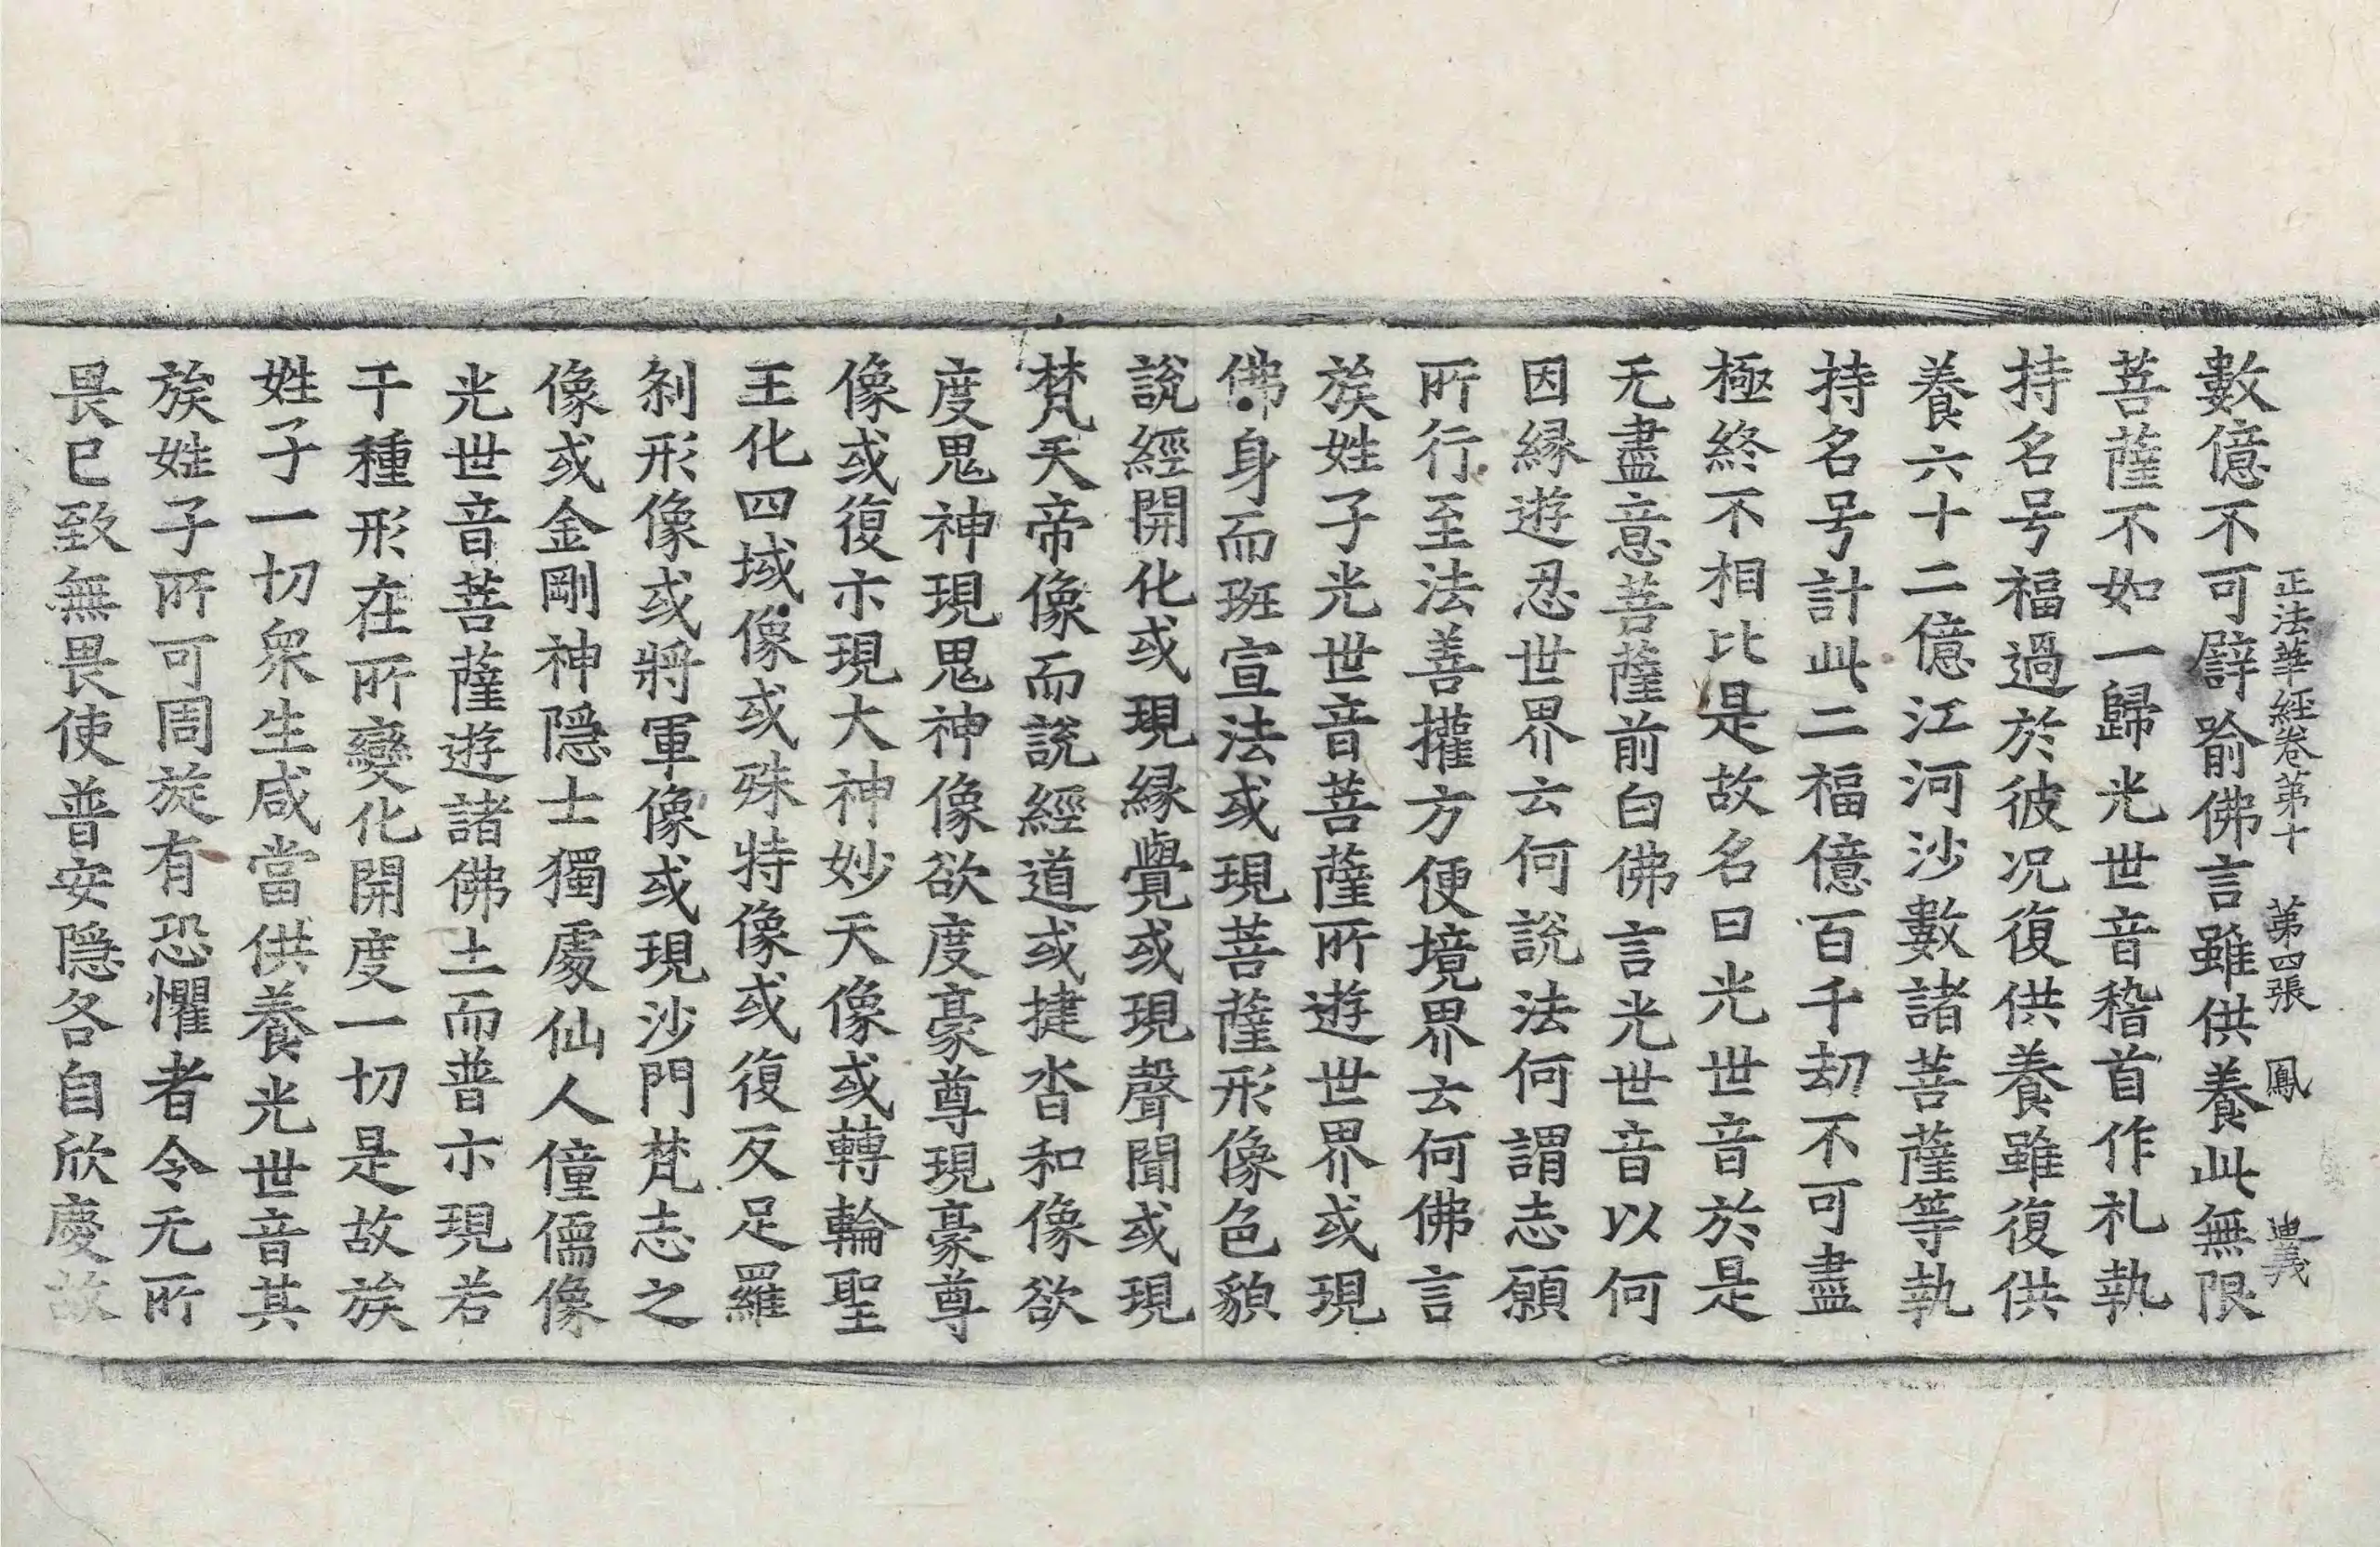 正法華經卷第十 第四張 鳳 迪義
數億不可譬喻佛言雖供養此無限
菩薩不如一歸光世音稽首作礼執
持名号福過於彼况復供養雖復供
養六十二億江河沙數諸菩薩等執
持名号計此二福億百千劫不可盡
極終不相比是故名曰光世音於是
无盡意菩薩前白佛言光世音以何
因緣遊忍世界云何說法何謂志願
所行至法善攉方便境界云何佛言
族姓子光世音菩薩所遊世界或現
佛身而班宣法或現菩薩形像色貌
說經開化或現緣覺或現聲聞或現
梵天帝像而說經道或揵沓和像欲
度鬼神現鬼神像欲度豪尊現豪尊
像或復示現大神妙天像或轉輪聖
王化四域像或殊特像或復反足羅
剎形像或將軍像或現沙門梵志之
像或金剛神隱士獨處仙人僮儒像
光世音菩薩遊諸佛土而普示現若
干種形在所變化開度一切是故族
姓子一切眾生咸當供養光世音其
族姓子所可周旋有恐懼者令无所
畏已致無畏使普安隱各自欣慶故